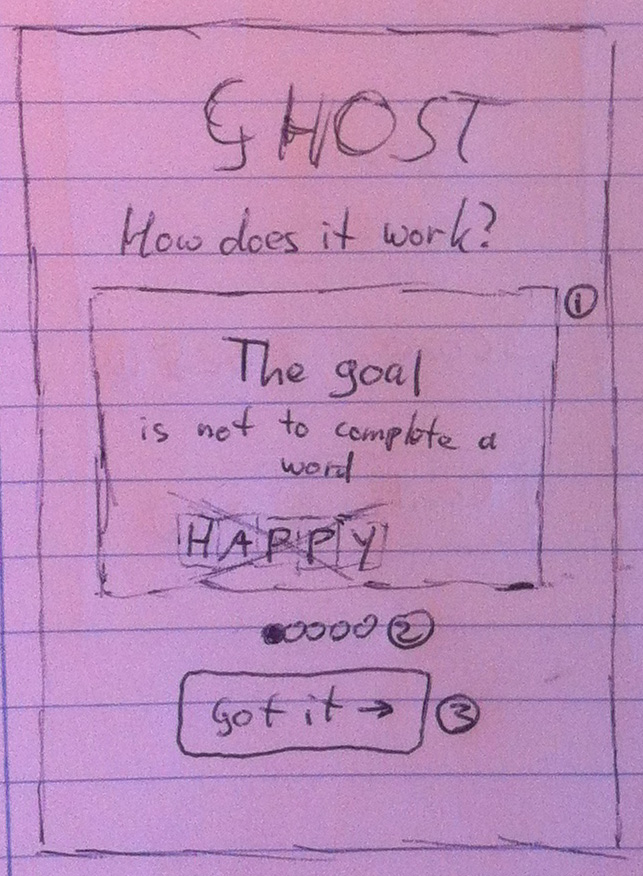 GHOST
How does it work?
1
The goal
is not to complete a
word
HAPPY
2
Got it →
3